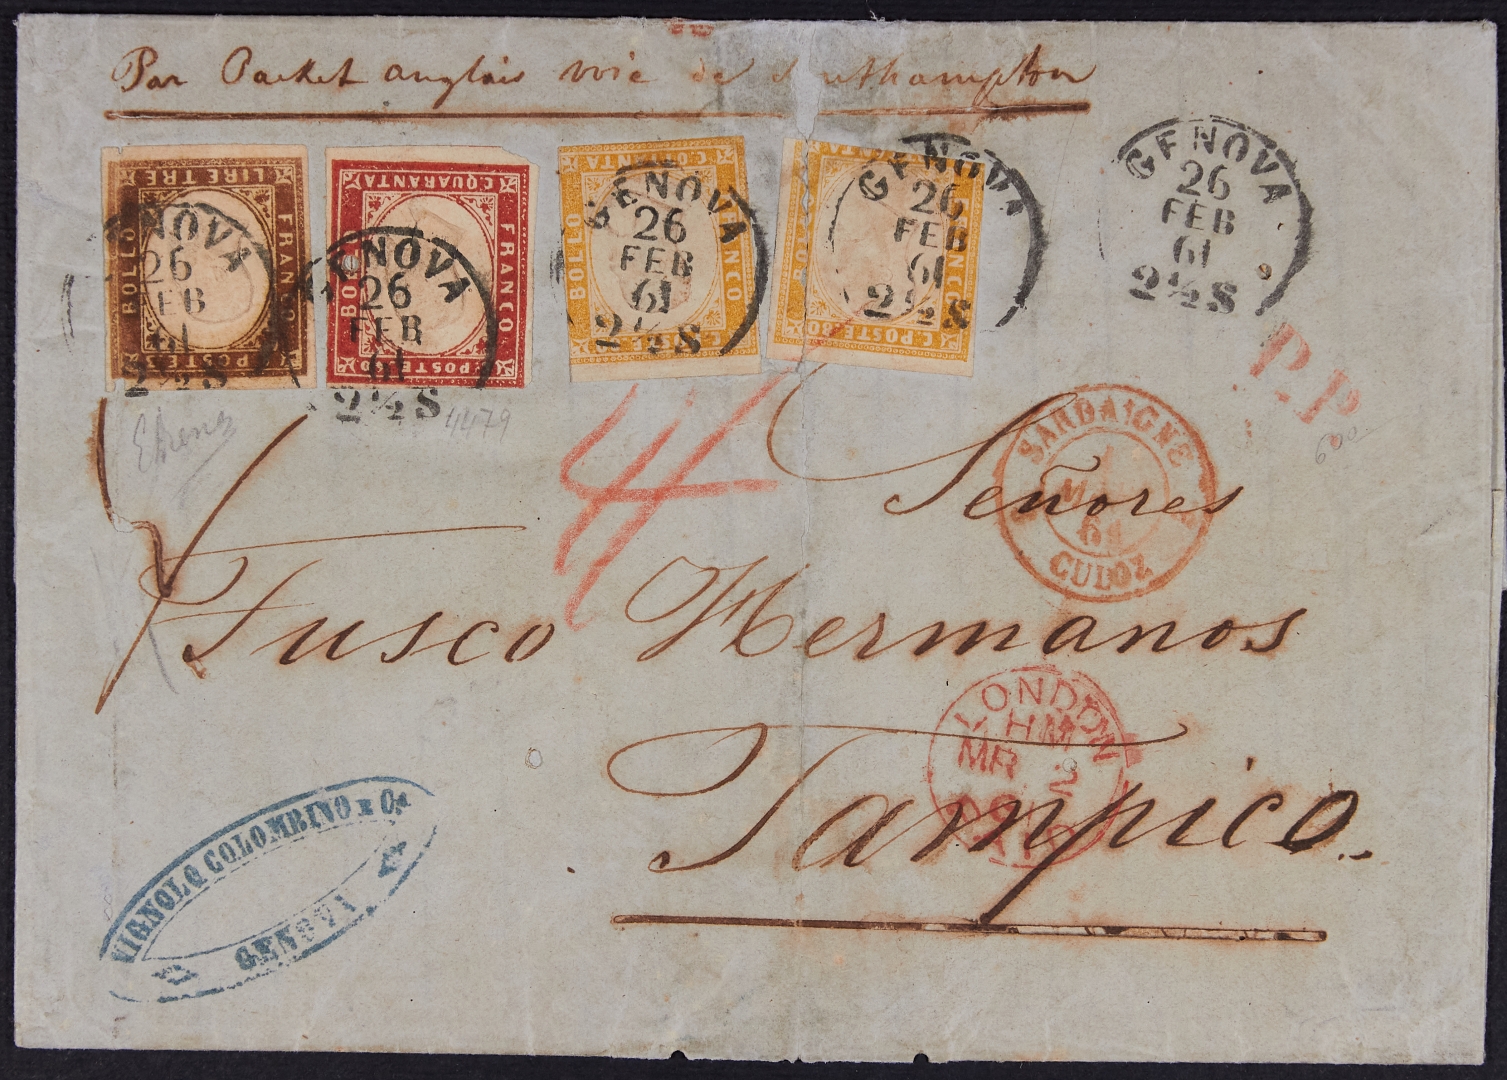 Par Packet anglais voie de Southampton
LIRE TRE
BOLLO
FRANCO
POSTE
C.QUARANTA
BOLLO
FRANCO
C.POSTE
C.OTTANTA
BOLLO
FRANCO
C.POSTE
C.OTTANTA
BOLLO
FRANCO
C.POSTE
GENOVA
26
FEB
61
2½S
GENOVA
26
FEB
61
2½S
GENOVA
26
FEB
61
2½S
GENOVA
26
FEB
61
2½S
GENOVA
26
FEB
61
2½S
P.P.
600
4479
4
SARDAIGNE
1
61
CULOZ
Señores
Fusco Hermanos
LONDON
HM
MR 2
61
PAID
Tampico.
VIGNOLO COLOMBINO E C.a
GENOVA